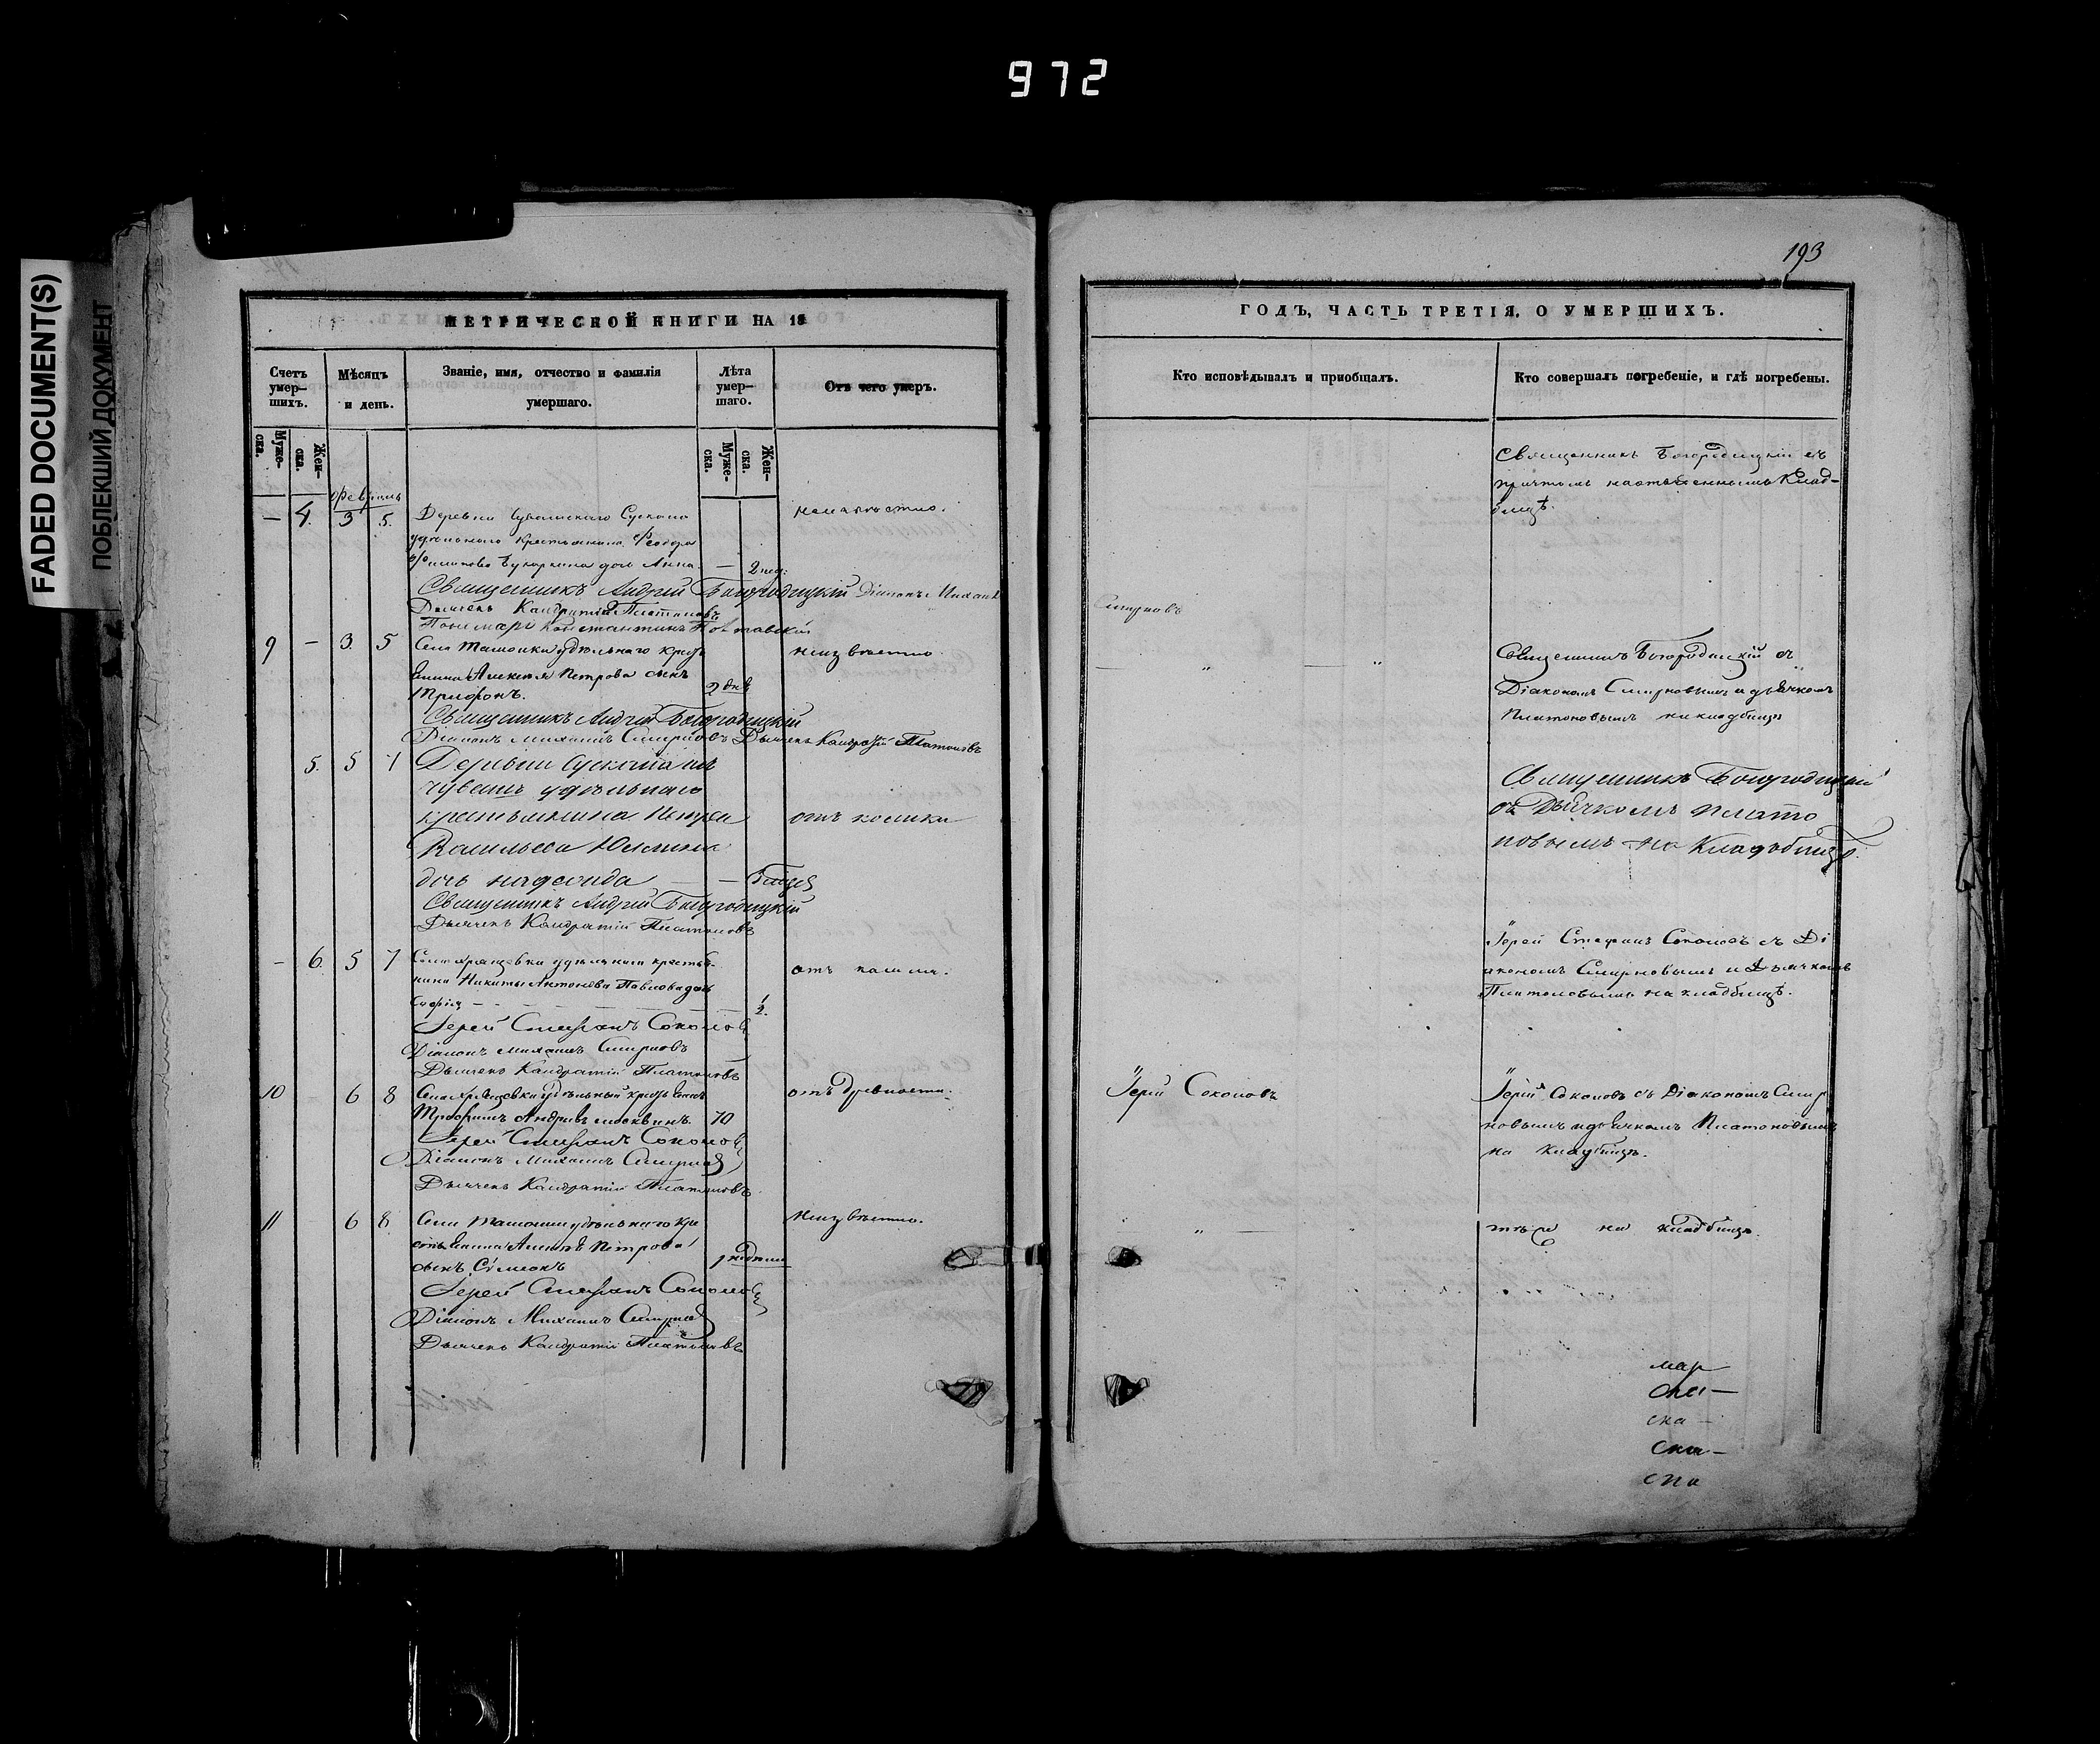 972
FADED DOCUMENT(S)
ПОБЛЕКШИЙ ДОКУМЕНТ
МЕТРИЧЕСКОЙ КНИГИ НА 18
Счетъ умер-
шихъ.
Мѣсяцъ
и день.
Званіе, имя, отчество и фамилія
умершаго.
Лѣта
умер-
шаго.
Отъ чего умеръ.
Муже-
ска.
Жен-
ска.
Муже-
ска.
Жен-
ска.
Февраль
— 4. 3 5. Деревни Чувашскаго Сускана
удѣльнаго крестьянина Ѳеодора
дочь Анна. — 2 нед:
Священникъ Андрей Богородицкій Діаконъ Михаилъ
Дьячекъ Кандратій Платоновъ
Пономарь Константинъ
9 — 3. 5 Села Ташолки удѣльнаго кресть
янина Алексѣя Петрова сынъ
Трифонъ. 2 дн.
неизвѣстно.
Священникъ Андрей Богородицкій
Діаконъ Михаилъ Смирновъ Дьячекъ Кандратій Платоновъ
5. 5 7 Деревни Сускана
чувашъ удѣльнаго
крестьянина Петра
отъ колики
Васильева Юклина
дочь
Священникъ Андрей Богородицкій
Дьячекъ Кандратій Платоновъ
— 6. 5 7 удѣльнаго крестья-
нина Никиты Антонова Павлова дочь
Софія — 1/2.
отъ кашля.
Іерей Стефанъ Соколовъ
Діаконъ Михаилъ Смирновъ
Дьячекъ Кандратій Платоновъ
10 6 8 удѣльный крестьянинъ
Трофимъ Андреевъ Москвинъ. 70
отъ древности.
Іерей Стефанъ Соколовъ
Діаконъ Михаилъ Смирновъ
Дьячекъ Кандратій Платоновъ
11 6 8 Села Ташолки удѣльнаго кре
стьянина Алексѣя Петрова
сынъ Сѵмеонъ 1 недѣли
неизвѣстно.
Іерей Стефанъ Соколовъ
Діаконъ Михаилъ Смирновъ
Дьячекъ Кандратій Платоновъ
193
ГОДЪ, ЧАСТЬ ТРЕТІЯ, О УМЕРШИХЪ.
Кто исповѣдывалъ и пріобщалъ.
Кто совершалъ погребеніе, и гдѣ погребены.
Священникъ Богородицкій съ
причтомъ на Клад-
бищѣ.
Смирновъ
— „ — „
Священникъ Богородицкій съ
Діакономъ Смирновымъ и дьячкомъ
Платоновымъ на кладбищѣ
Священникъ Богородицкій
съ Дьячкомъ Плато
новымъ на Кладбищѣ.
Іерей Стефанъ Соколовъ съ Ді
акономъ Смирновымъ и Дьячкомъ
Платоновымъ на кладбищѣ.
Іерей Соколовъ
Іерей Соколовъ съ Діакономъ Смир
новымъ и дьячкомъ Платоновымъ
на кладбищѣ.
„ — „
тѣ же на кладбищѣ.